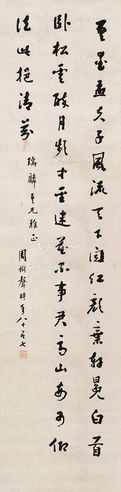 吾愛孟夫子風流天下聞紅顏棄軒冕白首
臥松雲醉月頻中聖迷花不事君高山安可仰
徒此挹清芬
瑞麟吾兄雅正
周樹聲時年八十有七